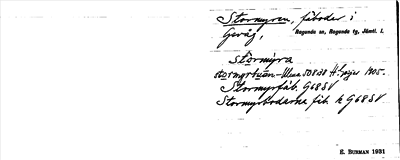 Stormyren, fäbodar i
Gevåg, Ragunda sn, Ragunda tg, Jämtl. l.
stòrmýra
stormyrbuan - Ulma 508:20 H. Geijer 1905.
Stormyrfäb. G68SV
Stormyrbodarna fäb. k G68SV
E. BURMAN 1931